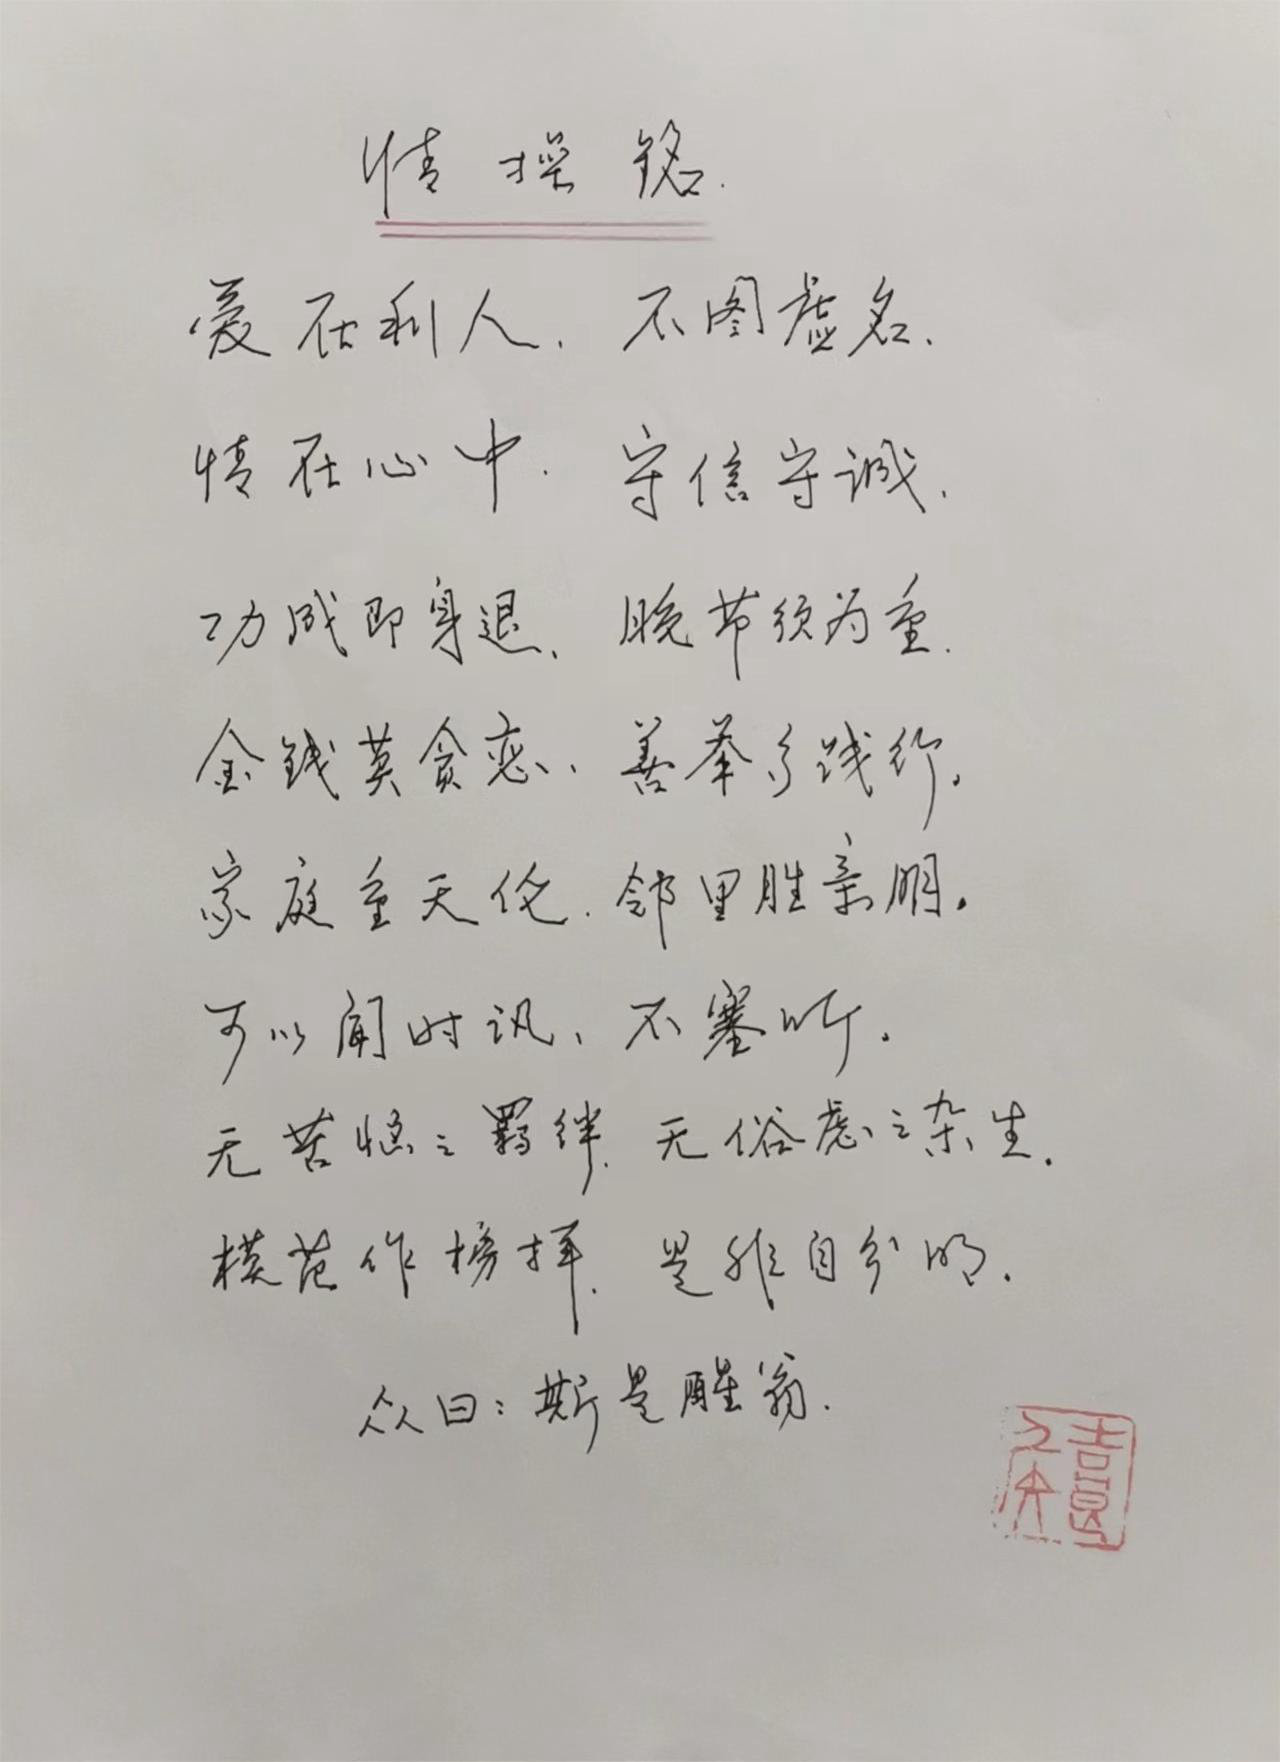 情操铭.
爱在利人、不图虚名.
情在心中.守信守诚.
功成即身退、晚节须为重.
金钱莫贪恋、善举多践行。
家庭重天伦.邻里胜亲朋。
可以闻时讯、不塞听。
无苦恼之羁绊.无俗虑之杂生.
模范作榜样.是非自分明.
众曰：斯是醒翁.